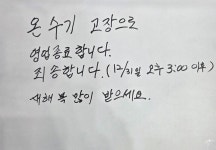 온수기 고장으로
영업종료 합니다.
죄송합니다. (12/31일 오후 3:00 이후)
새해 복 많이 받으세요.